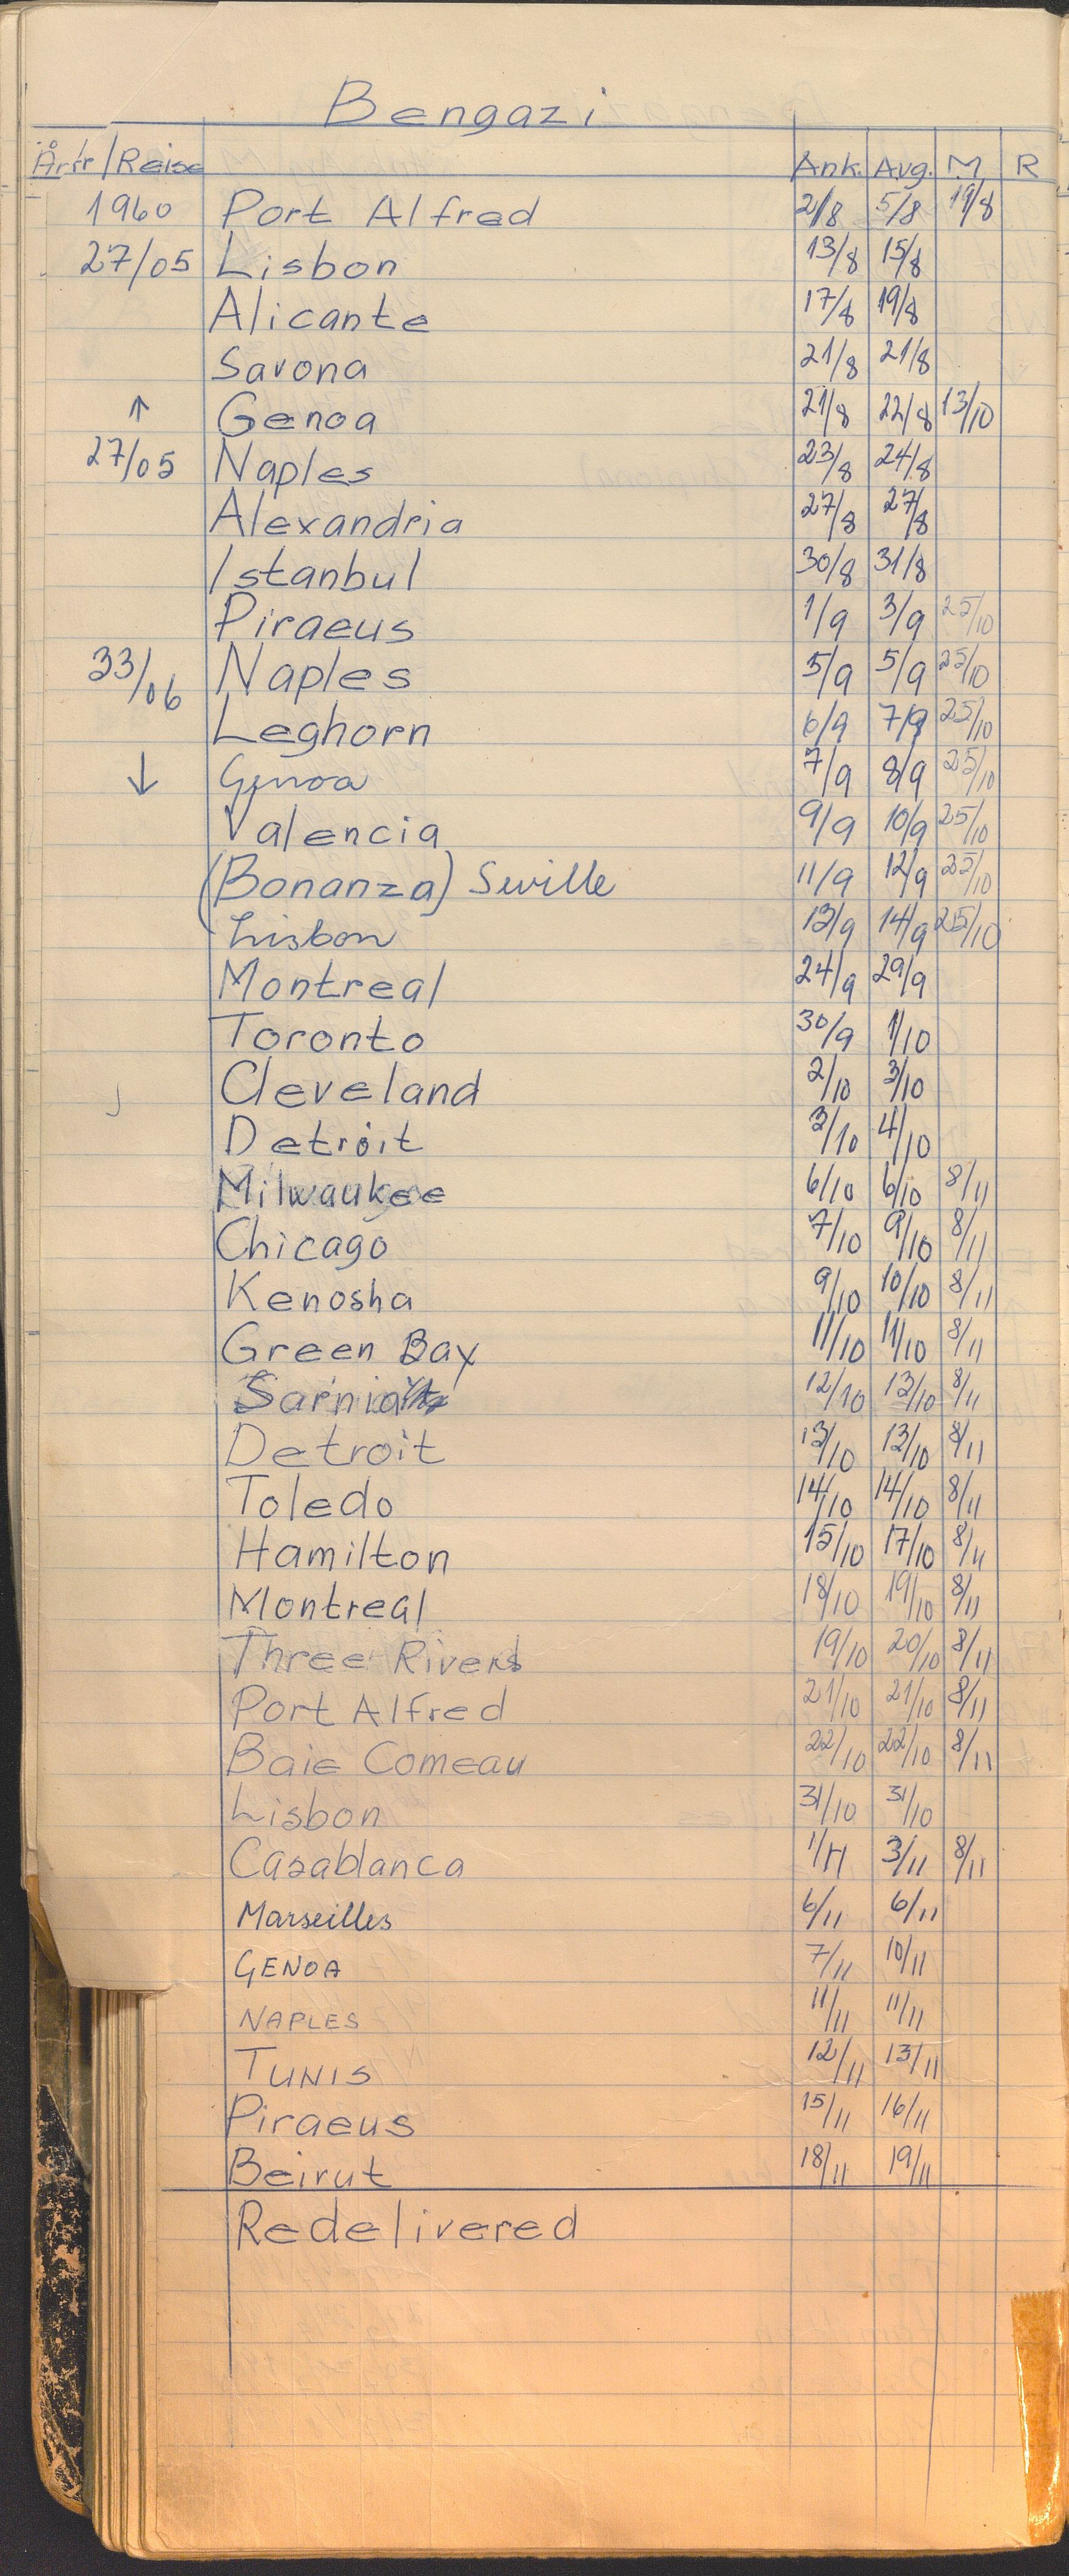 Bengazi
År/Reise Ank. Avg. M R
1960 Port Alfred 2/8 5/8 19/8
27/05 Lisbon 13/8 15/8
Alicante 17/8 19/8
Savona 21/8 21/8
↑ Genoa 21/8 22/8 13/10
27/05 Naples 23/8 24/8
Alexandria 27/8 27/8
Istanbul 30/8 31/8
Piraeus 1/9 3/9 25/10
33/06 Naples 5/9 5/9 25/10
Leghorn 6/9 7/9 25/10
↓ Genoa 7/9 8/9 25/10
Valencia 9/9 10/9 25/10
(Bonanza) Seville 11/9 12/9 25/10
Lisbon 13/9 14/9 25/10
Montreal 24/9 29/9
Toronto 30/9 1/10
Cleveland 2/10 3/10
Detroit 3/10 4/10
Milwaukee 6/10 6/10 8/11
Chicago 7/10 9/10 8/11
Kenosha 9/10 10/10 8/11
Green Bay 11/10 11/10 8/11
Sarnia 12/10 13/10 8/11
Detroit 13/10 13/10 8/11
Toledo 14/10 14/10 8/11
Hamilton 15/10 17/10 8/11
Montreal 18/10 19/10 8/11
Three Rivers 19/10 20/10 8/11
Port Alfred 21/10 21/10 8/11
Baie Comeau 22/10 22/10 8/11
Lisbon 31/10 31/10
Casablanca 1/11 3/11 8/11
Marseilles 6/11 6/11
GENOA 7/11 10/11
NAPLES 11/11 11/11
TUNIS 12/11 13/11
Piraeus 15/11 16/11
Beirut 18/11 19/11
Redelivered